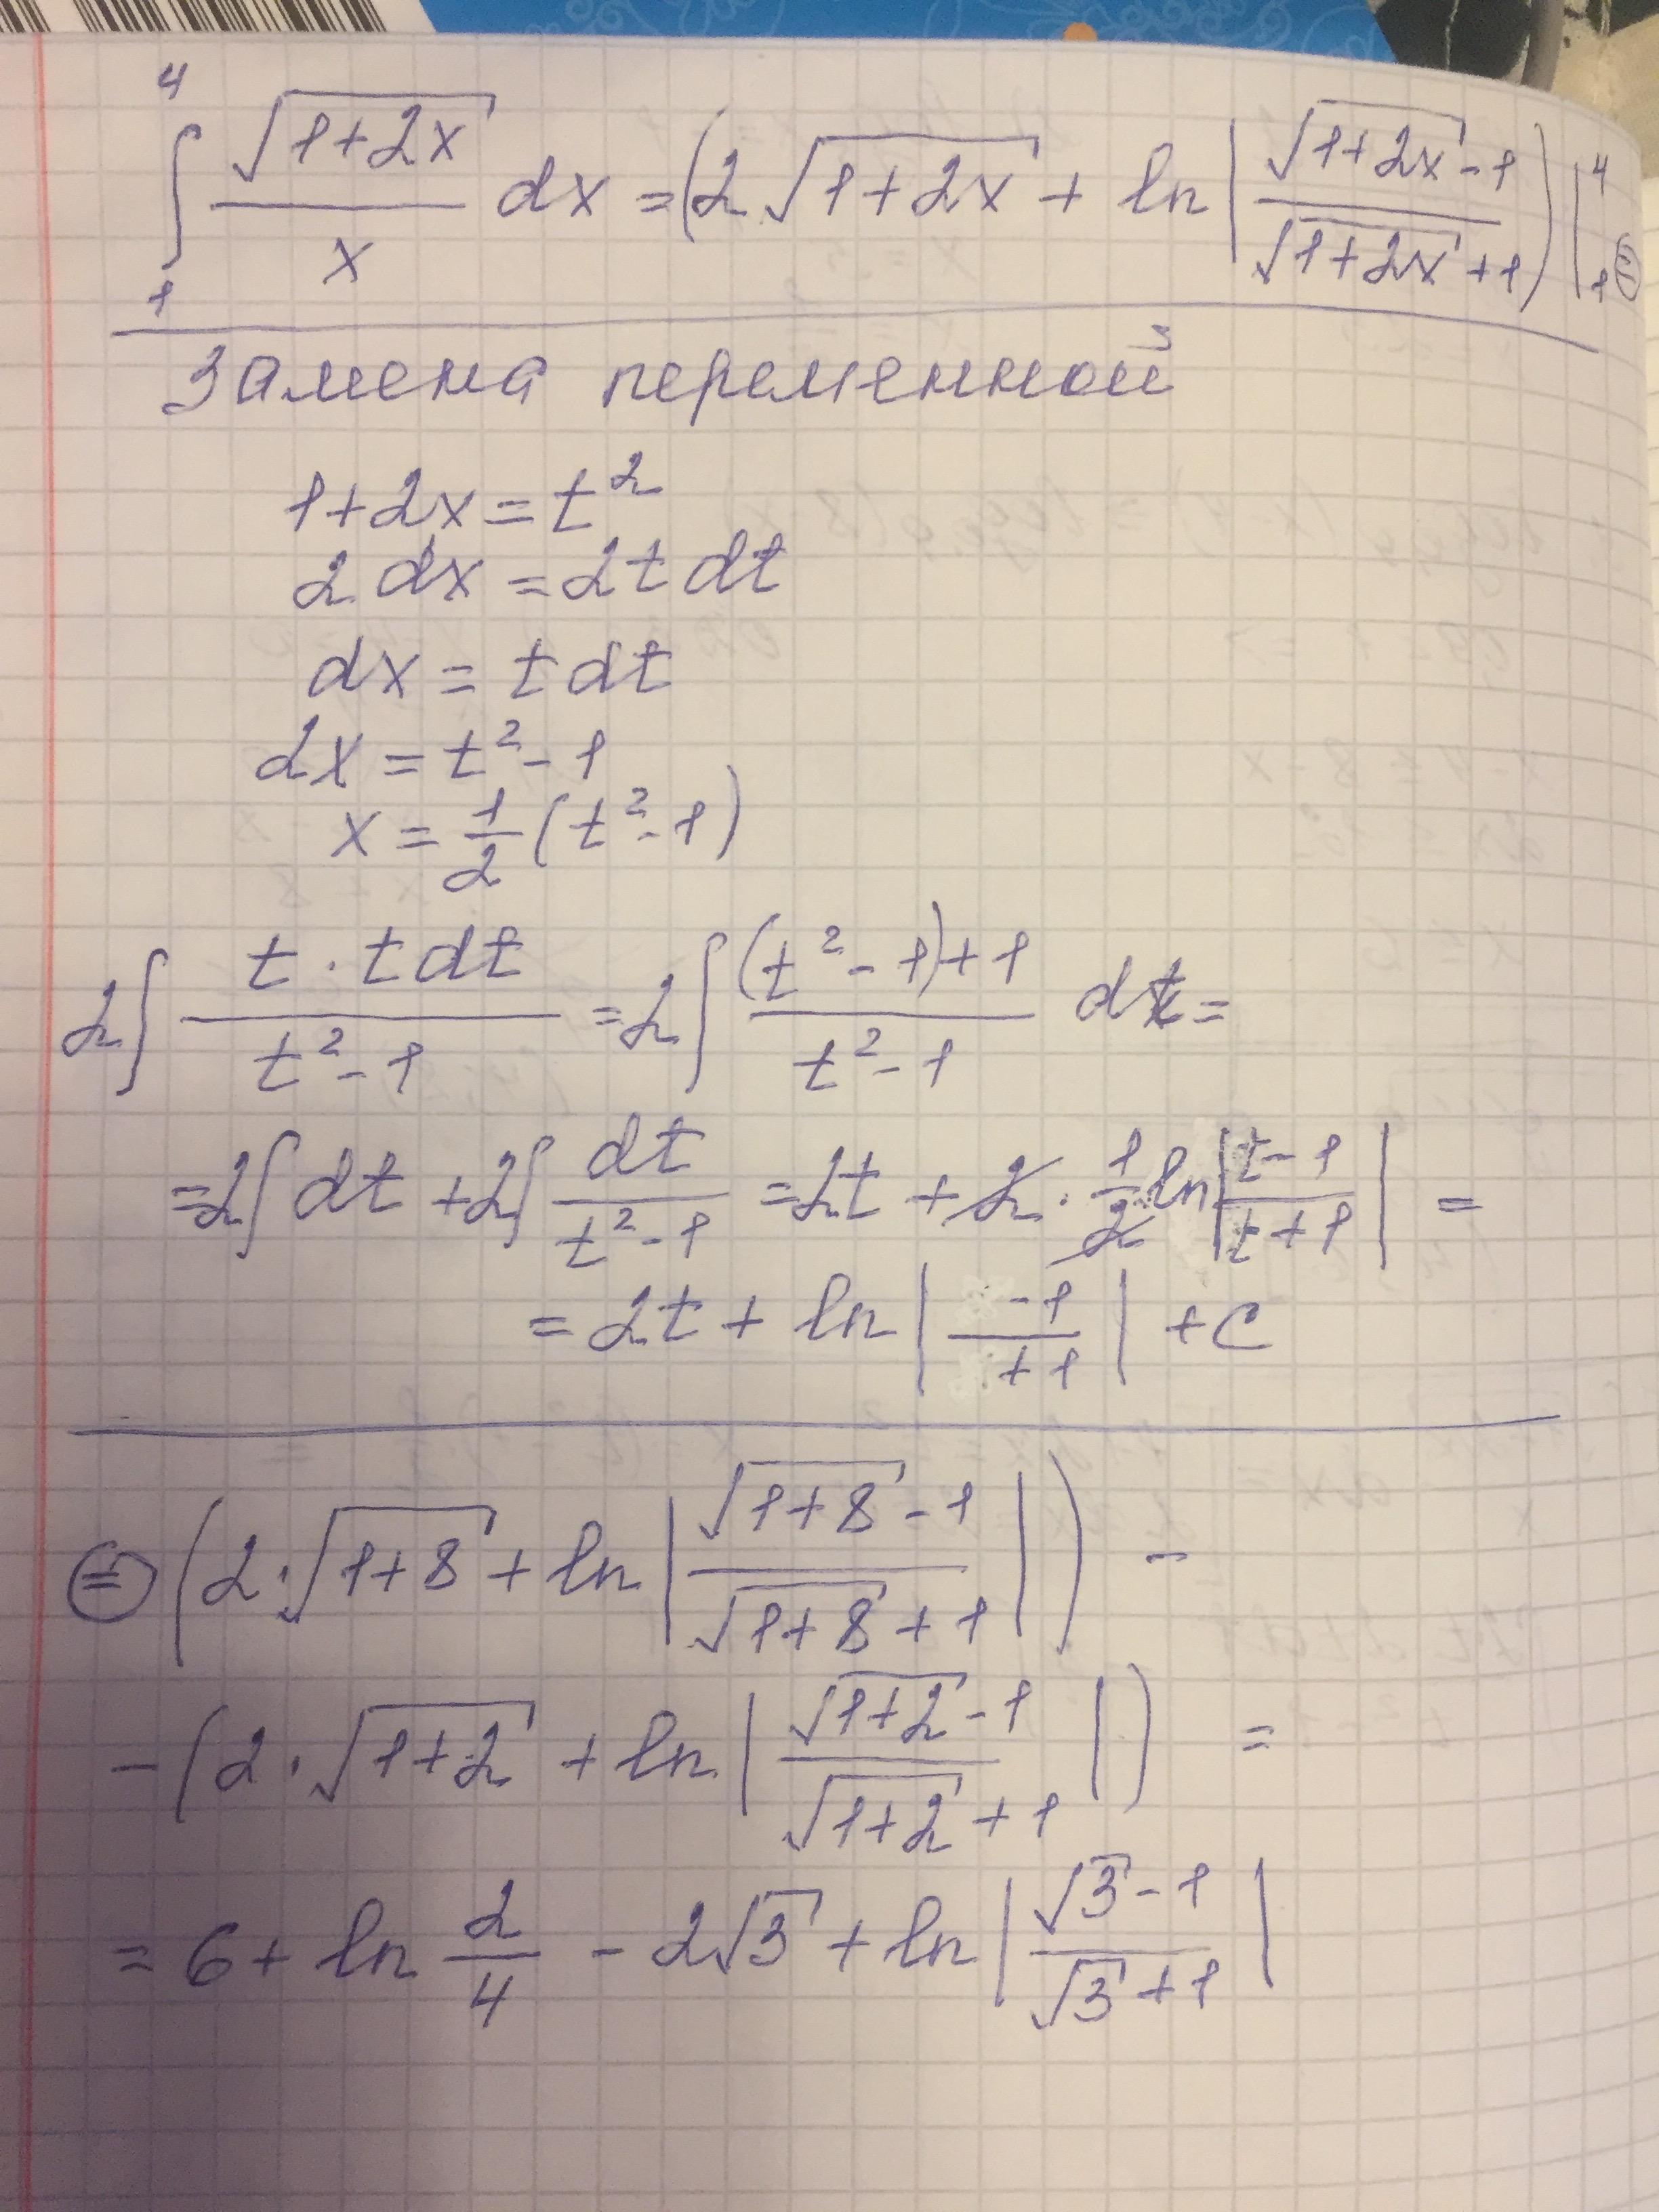 ∫₁⁴ √(1+2x)/x dx = (2√(1+2x) + ln|(√(1+2x) -1)/(√(1+2x) +1))|₁⁴ ⊜
Замена переменной
1+2x = t²
2 dx = 2t dt
dx = t dt
2x = t² - 1
x = 1/2 (t² - 1)
2∫ (t · t dt)/(t² - 1) = 2∫ ((t² - 1) + 1)/(t² - 1) dt =
= 2∫ dt + 2∫ dt/(t² - 1) = 2t + 2 · 1/2 ln|(t - 1)/(t + 1)| =
= 2t + ln|(-1)/(+1)| + C
⊜ (2·√(1+8) + ln|(√(1+8) - 1)/(√(1+8) + 1)|) -
- (2·√(1+2) + ln|(√(1+2) - 1)/(√(1+2) + 1)|) =
= 6 + ln 2/4 - 2√3 + ln|(√3 - 1)/(√3 + 1)|